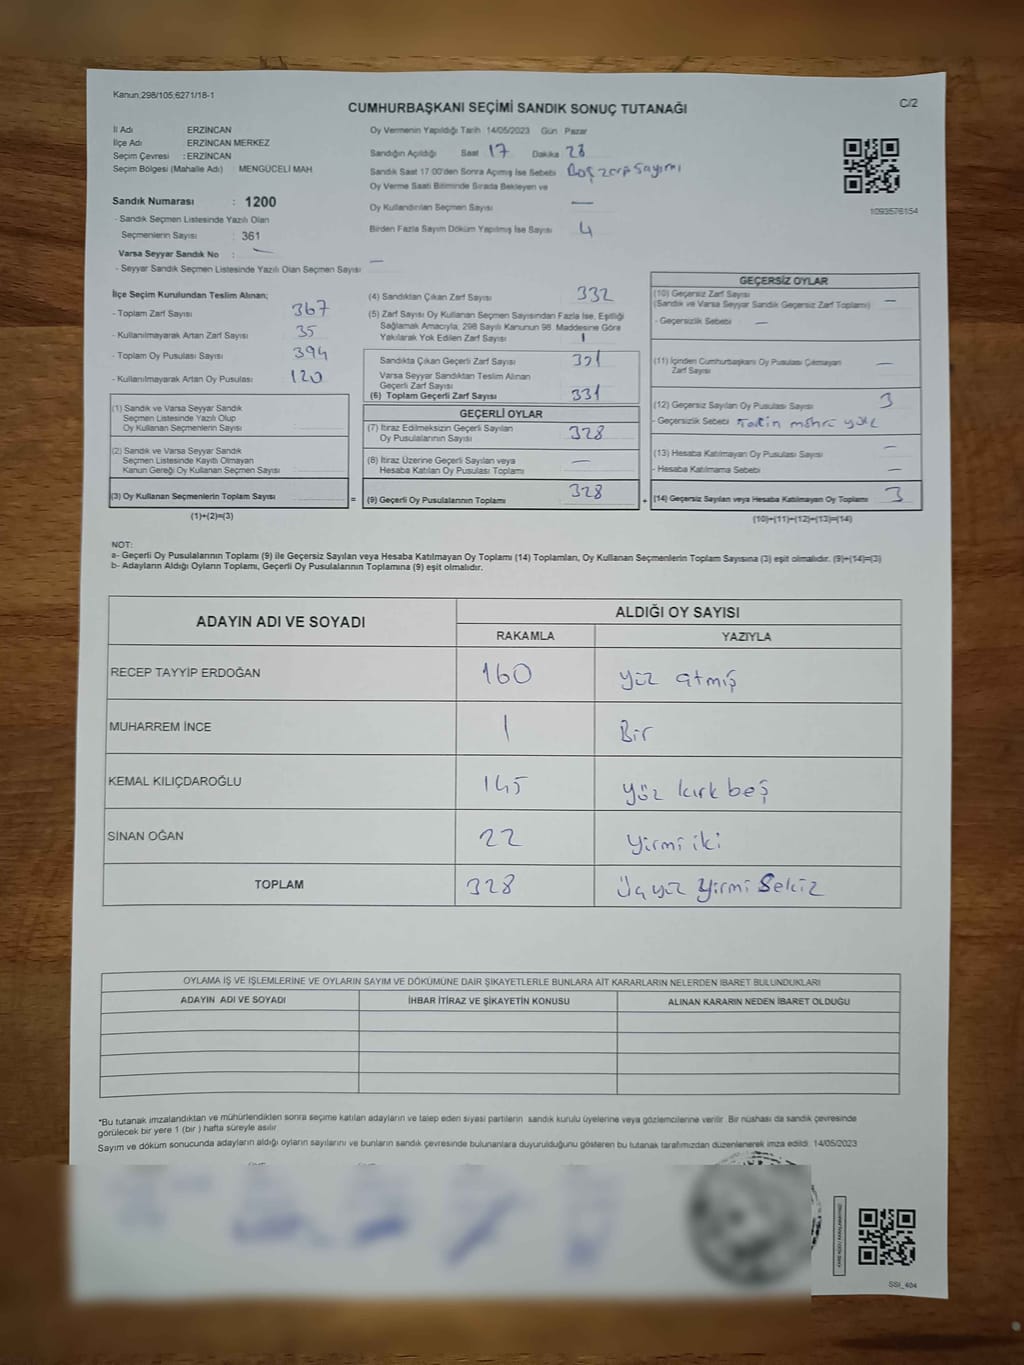 Kanun;298/105,6271/18-1
CUMHURBAŞKANI SEÇİMİ SANDIK SONUÇ TUTANAĞI
C/2
İl Adı ERZİNCAN
İlçe Adı ERZİNCAN MERKEZ
Seçim Çevresi : ERZİNCAN
Seçim Bölgesi (Mahalle Adı) : MENGÜCELİ MAH
Sandık Numarası : 1200
- Sandık Seçmen Listesinde Yazılı Olan
Seçmenlerin Sayısı : 361
Varsa Seyyar Sandık No : —
- Seyyar Sandık Seçmen Listesinde Yazılı Olan Seçmen Sayısı —
Oy Vermenin Yapıldığı Tarih 14/05/2023 Gün Pazar
Sandığın Açıldığı Saat 17 Dakika 28
Sandık Saat 17:00'den Sonra Açımış İse Sebebi Boş zarf sayımı
Oy Verme Saati Bitiminde Sırada Bekleyen ve
Oy Kullandırılan Seçmen Sayısı —
Birden Fazla Sayım Döküm Yapılmış İse Sayısı 4
1093576154
İlçe Seçim Kurulundan Teslim Alınan;
- Toplam Zarf Sayısı 367
- Kullanılmayarak Artan Zarf Sayısı 35
- Toplam Oy Pusulası Sayısı 394
- Kullanılmayarak Artan Oy Pusulası 120
(1) Sandık ve Varsa Seyyar Sandık
Seçmen Listesinde Yazılı Olup
Oy Kullanan Seçmenlerin Sayısı
(2) Sandık ve Varsa Seyyar Sandık
Seçmen Listesinde Kayıtlı Olmayan
Kanun Gereği Oy Kullanan Seçmen Sayısı
(3) Oy Kullanan Seçmenlerin Toplam Sayısı =
(1)+(2)=(3)
(4) Sandıktan Çıkan Zarf Sayısı 332
(5) Zarf Sayısı Oy Kullanan Seçmen Sayısından Fazla İse, Eşitliği
Sağlamak Amacıyla, 298 Sayılı Kanunun 98. Maddesine Göre
Yakılarak Yok Edilen Zarf Sayısı 1
Sandıkta Çıkan Geçerli Zarf Sayısı 331
Varsa Seyyar Sandıktan Teslim Alınan
Geçerli Zarf Sayısı
(6) Toplam Geçerli Zarf Sayısı 331
GEÇERLİ OYLAR
(7) İtiraz Edilmeksizin Geçerli Sayılan
Oy Pusulalarının Sayısı 328
(8) İtiraz Üzerine Geçerli Sayılan veya
Hesaba Katılan Oy Pusulası Toplamı —
(9) Geçerli Oy Pusulalarının Toplamı 328 +
GEÇERSİZ OYLAR
(10) Geçersiz Zarf Sayısı
(Sandık ve Varsa Seyyar Sandık Geçersiz Zarf Toplamı) —
- Geçersizlik Sebebi —
(11) İçinden Cumhurbaşkanı Oy Pusulası Çıkmayan
Zarf Sayısı —
(12) Geçersiz Sayılan Oy Pusulası Sayısı 3
- Geçersizlik Sebebi mühre yok
(13) Hesaba Katılmayan Oy Pusulası Sayısı —
- Hesaba Katılmama Sebebi —
(14) Geçersiz Sayılan veya Hesaba Katılmayan Oy Toplamı 3
(10)+(11)+(12)+(13)=(14)
NOT:
a- Geçerli Oy Pusulalarının Toplamı (9) ile Geçersiz Sayılan veya Hesaba Katılmayan Oy Toplamı (14) Toplamları, Oy Kullanan Seçmenlerin Toplam Sayısına (3) eşit olmalıdır. (9)+(14)=(3)
b- Adayların Aldığı Oyların Toplamı, Geçerli Oy Pusulalarının Toplamına (9) eşit olmalıdır.
ADAYIN ADI VE SOYADI
ALDIĞI OY SAYISI
RAKAMLA YAZIYLA
RECEP TAYYİP ERDOĞAN 160 Yüz atmış
MUHARREM İNCE 1 Bir
KEMAL KILIÇDAROĞLU 145 Yüz kırk beş
SİNAN OĞAN 22 Yirmi iki
TOPLAM 328 Üçyüz Yirmi Sekiz
OYLAMA İŞ VE İŞLEMLERİNE VE OYLARIN SAYIM VE DÖKÜMÜNE DAİR ŞİKAYETLERLE BUNLARA AİT KARARLARIN NELERDEN İBARET BULUNDUKLARI
ADAYIN ADI VE SOYADI İHBAR İTİRAZ VE ŞİKAYETİN KONUSU ALINAN KARARIN NEDEN İBARET OLDUĞU
*Bu tutanak imzalandıktan ve mühürlendikten sonra seçime katılan adayların ve talep eden siyasi partilerin sandık kurulu üyelerine veya gözlemcilerine verilir. Bir nüshası da sandık çevresinde
görülecek bir yere 1 (bir ) hafta süreyle asılır.
Sayım ve döküm sonucunda adayların aldığı oyların sayılarını ve bunların sandık çevresinde bulunanlara duyurulduğunu gösteren bu tutanak tarafımızdan düzenlenerek imza edildi. 14/05/2023
SSI_404